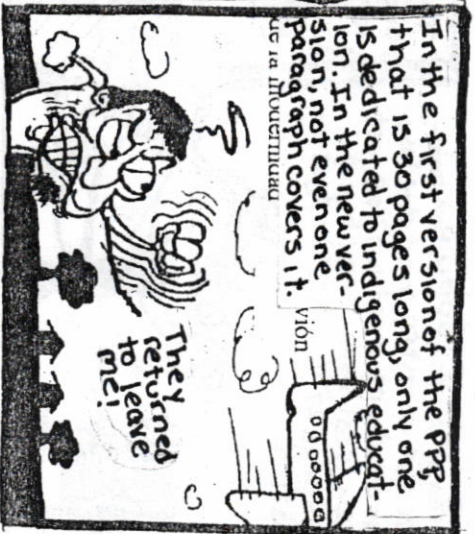 In the first version of the PPP,
that is 30 pages long, only one
is dedicated to indigenous educat-
ion. In the new ver-
sion, not even one
paragraph covers it.
de la modernidad
vión
They
returned
to leave
me!